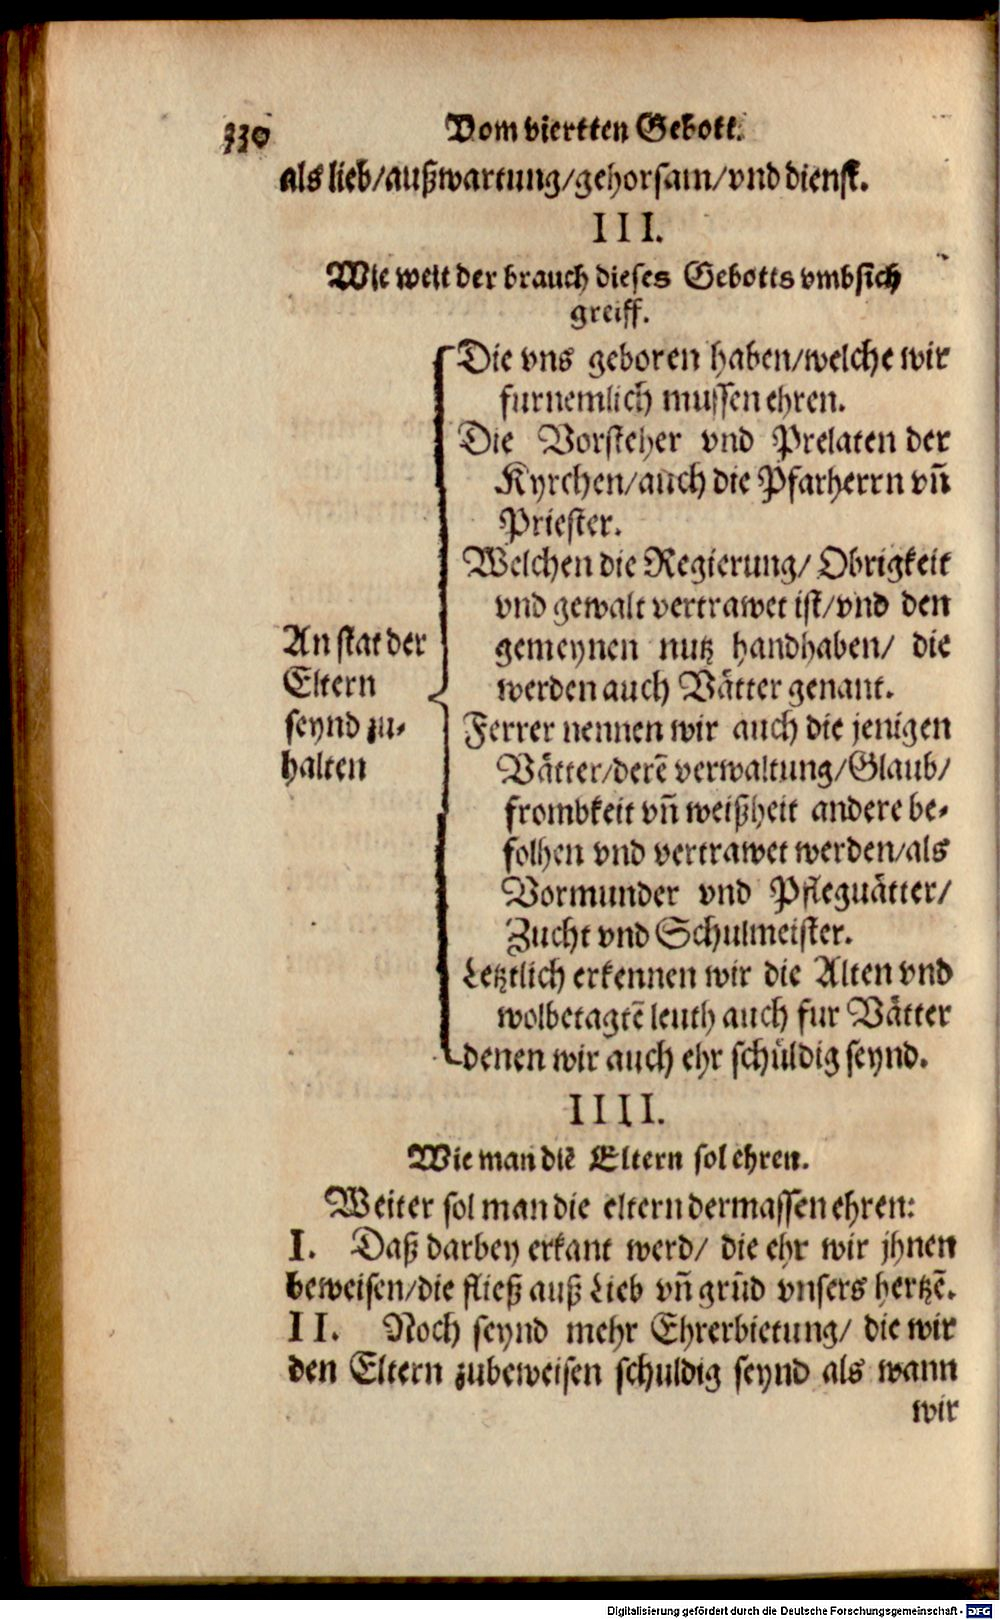 330 Vom viertten Gebott.
als lieb/außwartung/gehorsam/vnd dienst.
III.
Wie weit der brauch dieses Gebotts vmbsich
greiff.
Die vns geboren haben/welche wir
furnemlich mussen ehren.
Die Vorsteher vnd Prelaten der
Kyrchen/auch die Pfarherrn vñ
Priester.
Welchen die Regierung/ Obrigkeit
vnd gewalt vertrawet ist/vnd den
An stat der
Eltern
seynd zu-
halten
gemeynen nutz handhaben/ die
werden auch Vätter genant.
Ferrer nennen wir auch die jenigen
Vätter/derẽ verwaltung/Glaub/
frombkeit vñ weißheit andere be-
folhen vnd vertrawet werden/als
Vormunder vnd Pfleguätter/
Zucht vnd Schulmeister.
Letztlich erkennen wir die Alten vnd
wolbetagtẽ leuth auch fur Vätter
denen wir auch ehr schüldig seynd.
IIII.
Wie man die Eltern sol ehren.
Weiter sol man die eltern dermassen ehren:
I. Daß darbey erkant werd/ die ehr wir jhnen
beweisen/die fließ auß Lieb vñ grũd vnsers hertzẽ.
II. Noch seynd mehr Ehrerbietung/ die wir
den Eltern zubeweisen schuldig seynd als wann
wir
Digitalisierung gefördert durch die Deutsche Forschungsgemeinschaft - DFG